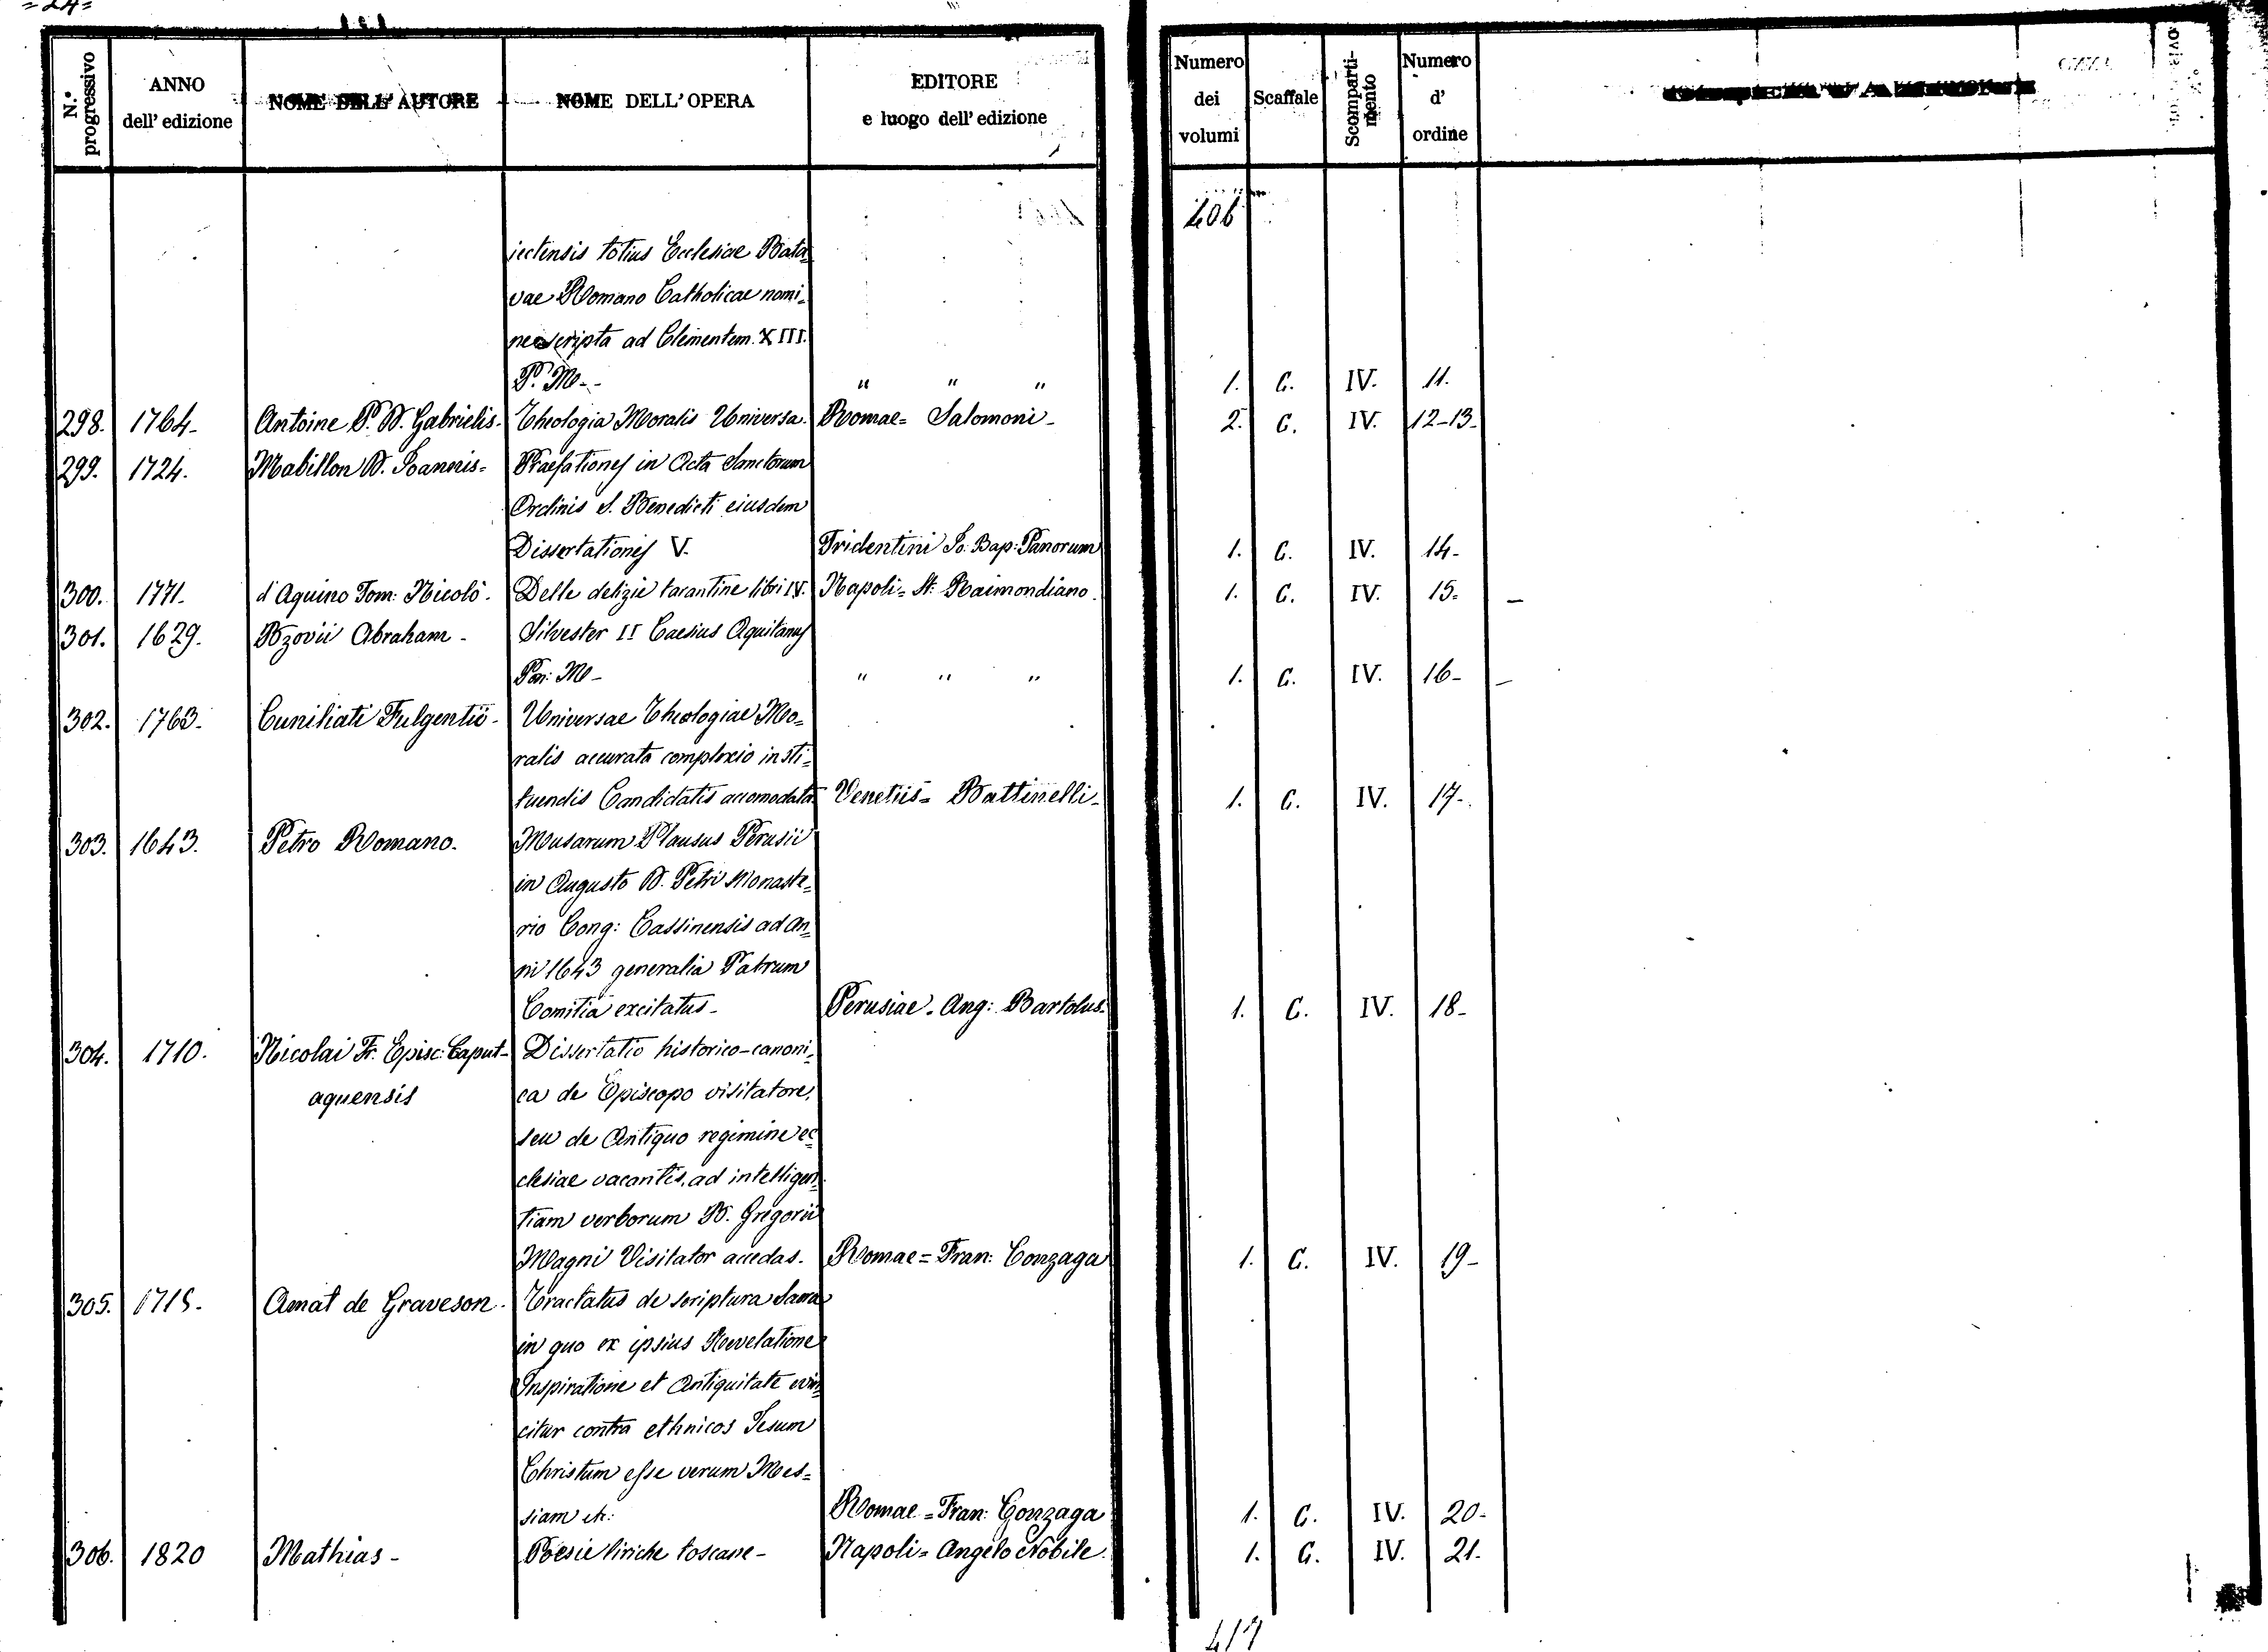 = 24 =
N.° progressivo | ANNO dell' edizione | NOME DELL' AUTORE | NOME DELL' OPERA | EDITORE e luogo dell' edizione | Numero dei volumi | Scaffale | Scompartimento | Numero d' ordine
406
iectensis totius Ecclesiae Bata=
vae Romano Catholicae nomi=
ne scripta ad Clementem XIII.
P. M. - " " " 1. G. IV. 11.
298. 1764- Antoine P. D. Gabrielis. Theologia Moralis Universa. Romae= Salomoni- 2. G. IV. 12-13-
299. 1724. Mabillon D. Joannis= Praefationes in Acta Sanctorum
Ordinis S. Benedicti eiusdem
Dissertationes V. Tridentini Jo. Bap: Panorum 1. G. IV. 14-
300. 1771. d'Aquino Tom: Nicolò. Delle delizie tarantine libri IV. Napoli= St. Raimondiano. 1. G. IV. 15. -
301. 1629. Bzovii Abraham- Silvester II Caesius Aquitanus
Pon: M- " " " 1. G. IV. 16- -
302. 1763- Cuniliati Fulgentii- Universae Theologiae Mo=
ralis accurata complexio insti=
tuendis Candidatis accomodata Venetiis= Battinelli- 1. G. IV. 17-
303. 1643. Petro Romano. Musarum Plausus Perusii
in Augusto D. Petri Monaste=
rio Cong: Cassinensis ad An=
ni 1643 generalia Patrum
Comitia excitatus- Perusiae. Ang: Bartolus. 1. G. IV. 18-
304. 1710. Nicolai Fr. Episc: Caput- Dissertatio historico-canoni=
aquensis ca de Episcopo visitatore,
seu de Antiquo regimine ec=
clesiae vacantis, ad intelligen=
tiam verborum D. Gregorii
Magni Visitator accedas. Romae= Fran: Gonzaga 1. G. IV. 19-
305. 1715. Amat de Graveson. Tractatus de scriptura Sacra
in quo ex ipsius Revelatione
Inspiratione et Antiquitate evin=
citur contra ethnicos Jesum
Christum esse verum Mes=
siam etc: Romae= Fran: Gonzaga 1. G. IV. 20-
306. 1820 Mathias- Poesie liriche toscane- Napoli= Angelo Nobile. 1. G. IV. 21.
417